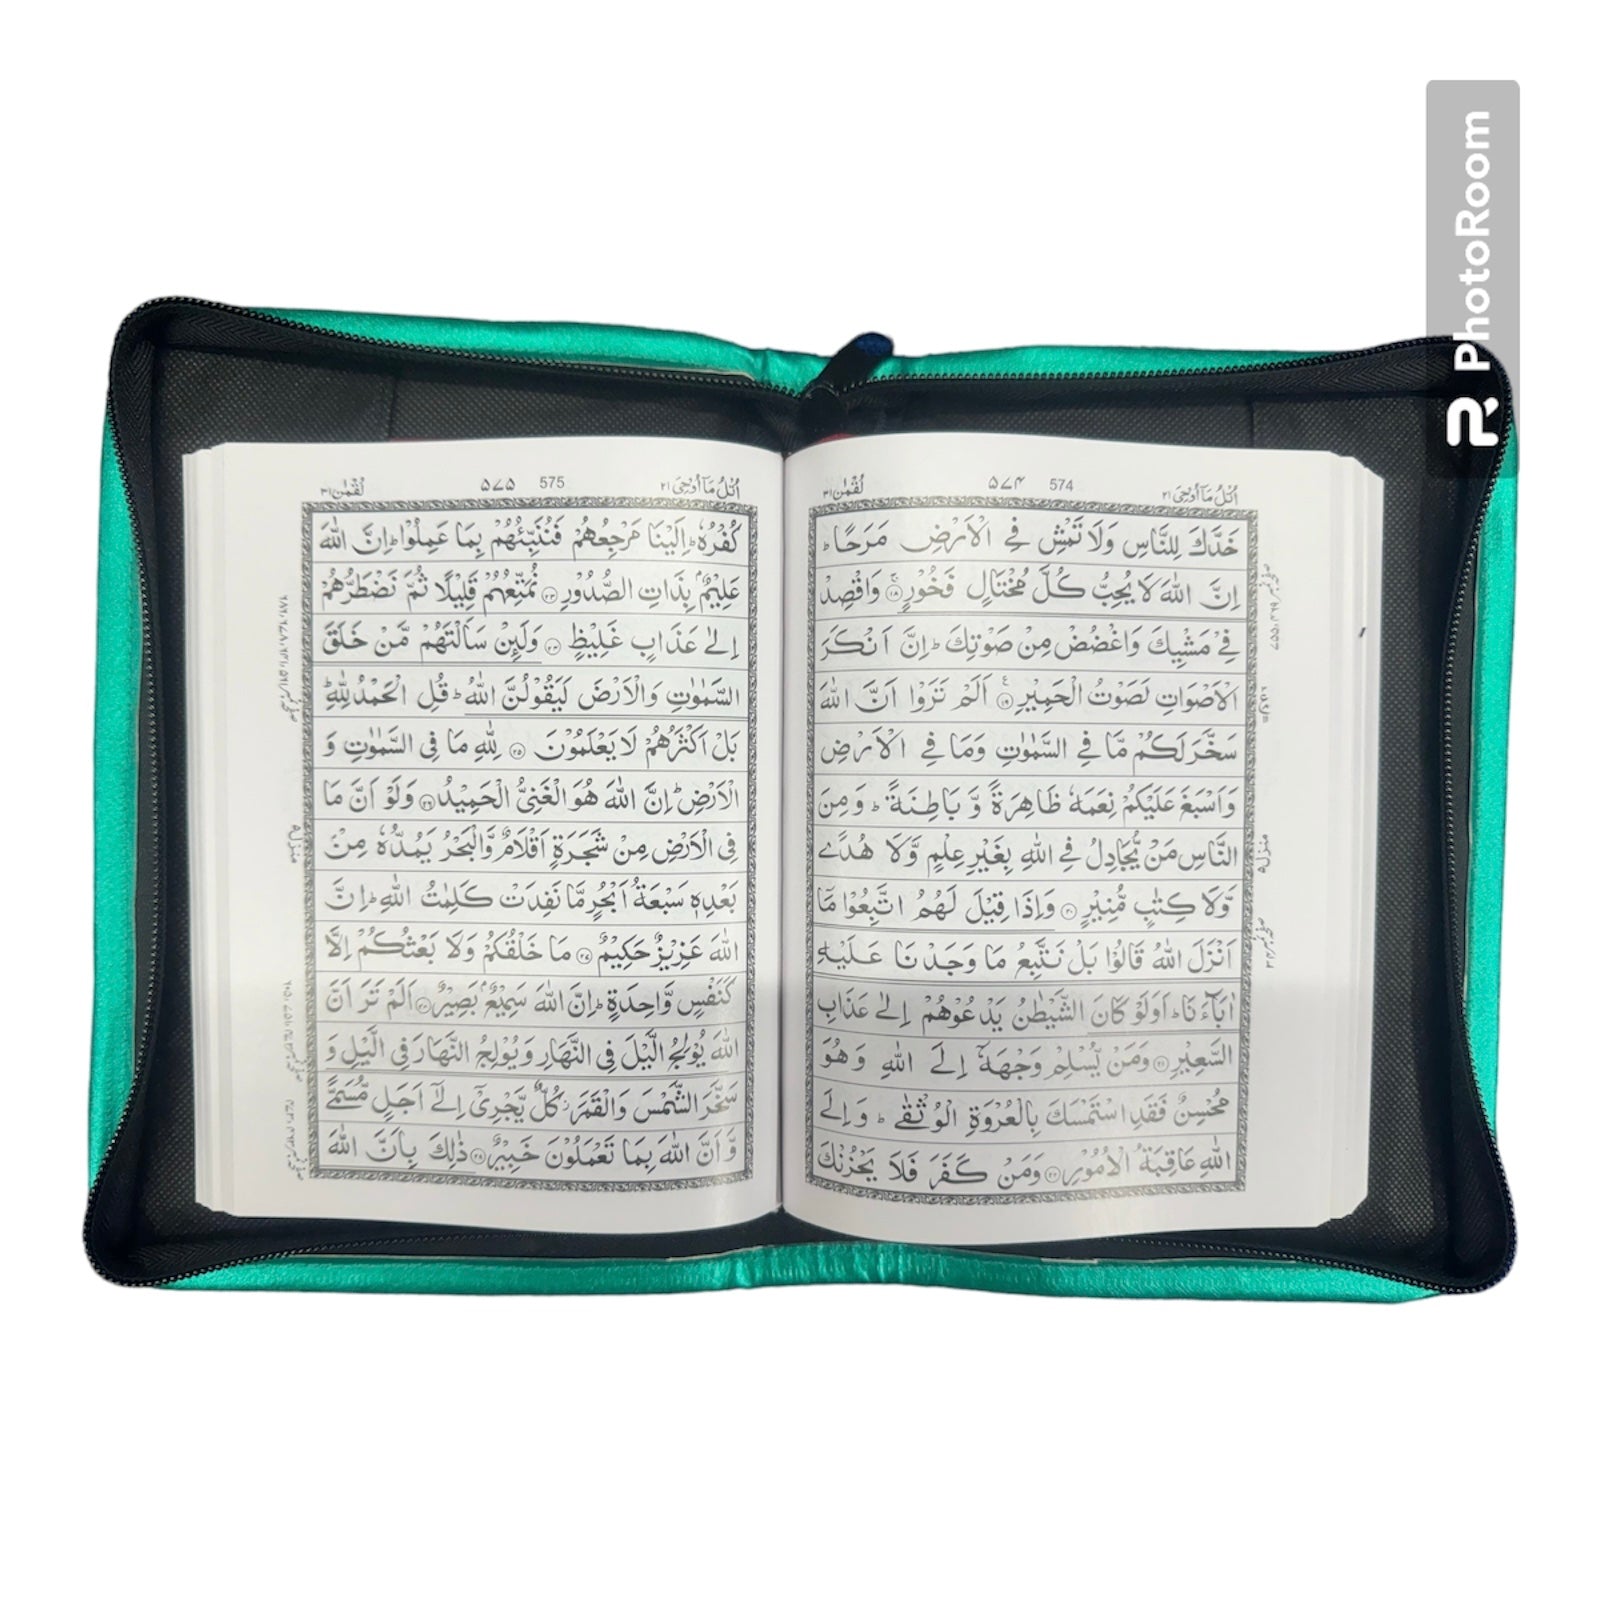 اُتْلُ مَآ اُوْحِیَ ٢١
574
۵۷۴
لُقْمٰن ٣١
خَدَّكَ لِلنَّاسِ وَلَا تَمْشِ فِي الْاَرْضِ مَرَحًا ؕ
اِنَّ اللّٰهَ لَا يُحِبُّ كُلَّ مُخْتَالٍ فَخُوْرٍ ﴿١٨﴾ وَاقْصِدْ
فِيْ مَشْيِكَ وَاغْضُضْ مِنْ صَوْتِكَ ؕ اِنَّ اَنْكَرَ
الْاَصْوَاتِ لَصَوْتُ الْحَمِيْرِ ﴿١٩﴾ اَلَمْ تَرَوْا اَنَّ اللّٰهَ
سَخَّرَ لَكُمْ مَّا فِي السَّمٰوٰتِ وَمَا فِي الْاَرْضِ
وَاَسْبَغَ عَلَيْكُمْ نِعَمَهٗ ظَاهِرَةً وَّ بَاطِنَةً ؕ وَمِنَ
النَّاسِ مَنْ يُّجَادِلُ فِي اللّٰهِ بِغَيْرِ عِلْمٍ وَّلَا هُدًے
وَّلَا كِتٰبٍ مُّنِيْرٍ ﴿٢٠﴾ وَاِذَا قِيْلَ لَهُمُ اتَّبِعُوْا مَآ
اَنْزَلَ اللّٰهُ قَالُوْا بَلْ نَتَّبِعُ مَا وَجَدْنَا عَلَيْهِ
اٰبَآءَنَا ؕ اَوَلَوْ كَانَ الشَّيْطٰنُ يَدْعُوْهُمْ اِلٰى عَذَابِ
السَّعِيْرِ ﴿٢١﴾ وَمَنْ يُّسْلِمْ وَجْهَهٗٓ اِلَى اللّٰهِ وَهُوَ
مُحْسِنٌ فَقَدِ اسْتَمْسَكَ بِالْعُرْوَةِ الْوُثْقٰے ؕ وَاِلَى
اللّٰهِ عَاقِبَةُ الْاُمُوْرِ ﴿٢٢﴾ وَمَنْ كَفَرَ فَلَا يَحْزُنْكَ
منزل ٥
اُتْلُ مَآ اُوْحِیَ ٢١
575
۵۷۵
لُقْمٰن ٣١
كُفْرُهٗ ؕ اِلَيْنَا مَرْجِعُهُمْ فَنُنَبِّئُهُمْ بِمَا عَمِلُوْا ؕ اِنَّ اللّٰهَ
عَلِيْمٌۢ بِذَاتِ الصُّدُوْرِ ﴿٢٣﴾ نُمَتِّعُهُمْ قَلِيْلًا ثُمَّ نَضْطَرُّهُمْ
اِلٰى عَذَابٍ غَلِيْظٍ ﴿٢٤﴾ وَلَئِنْ سَاَلْتَهُمْ مَّنْ خَلَقَ
السَّمٰوٰتِ وَالْاَرْضَ لَيَقُوْلُنَّ اللّٰهُ ؕ قُلِ الْحَمْدُ لِلّٰهِ ؕ
بَلْ اَكْثَرُهُمْ لَا يَعْلَمُوْنَ ﴿٢٥﴾ لِلّٰهِ مَا فِى السَّمٰوٰتِ وَ
الْاَرْضِ ؕ اِنَّ اللّٰهَ هُوَ الْغَنِىُّ الْحَمِيْدُ ﴿٢٦﴾ وَلَوْ اَنَّ مَا
فِى الْاَرْضِ مِنْ شَجَرَةٍ اَقْلَامٌ وَّالْبَحْرُ يَمُدُّهٗ مِنْۢ
بَعْدِهٖ سَبْعَةُ اَبْحُرٍ مَّا نَفِدَتْ كَلِمٰتُ اللّٰهِ ؕ اِنَّ
اللّٰهَ عَزِيْزٌ حَكِيْمٌ ﴿٢٧﴾ مَا خَلْقُكُمْ وَلَا بَعْثُكُمْ اِلَّا
كَنَفْسٍ وَّاحِدَةٍ ؕ اِنَّ اللّٰهَ سَمِيْعٌۢ بَصِيْرٌ ﴿٢٨﴾ اَلَمْ تَرَ اَنَّ
اللّٰهَ يُوْلِجُ الَّيْلَ فِى النَّهَارِ وَيُوْلِجُ النَّهَارَ فِى الَّيْلِ وَ
سَخَّرَ الشَّمْسَ وَالْقَمَرَ ؗ كُلٌّ يَّجْرِىْٓ اِلٰٓى اَجَلٍ مُّسَمًّے
وَّاَنَّ اللّٰهَ بِمَا تَعْمَلُوْنَ خَبِيْرٌ ﴿٢٩﴾ ذٰلِكَ بِاَنَّ اللّٰهَ
منزل ٥
PhotoRoom